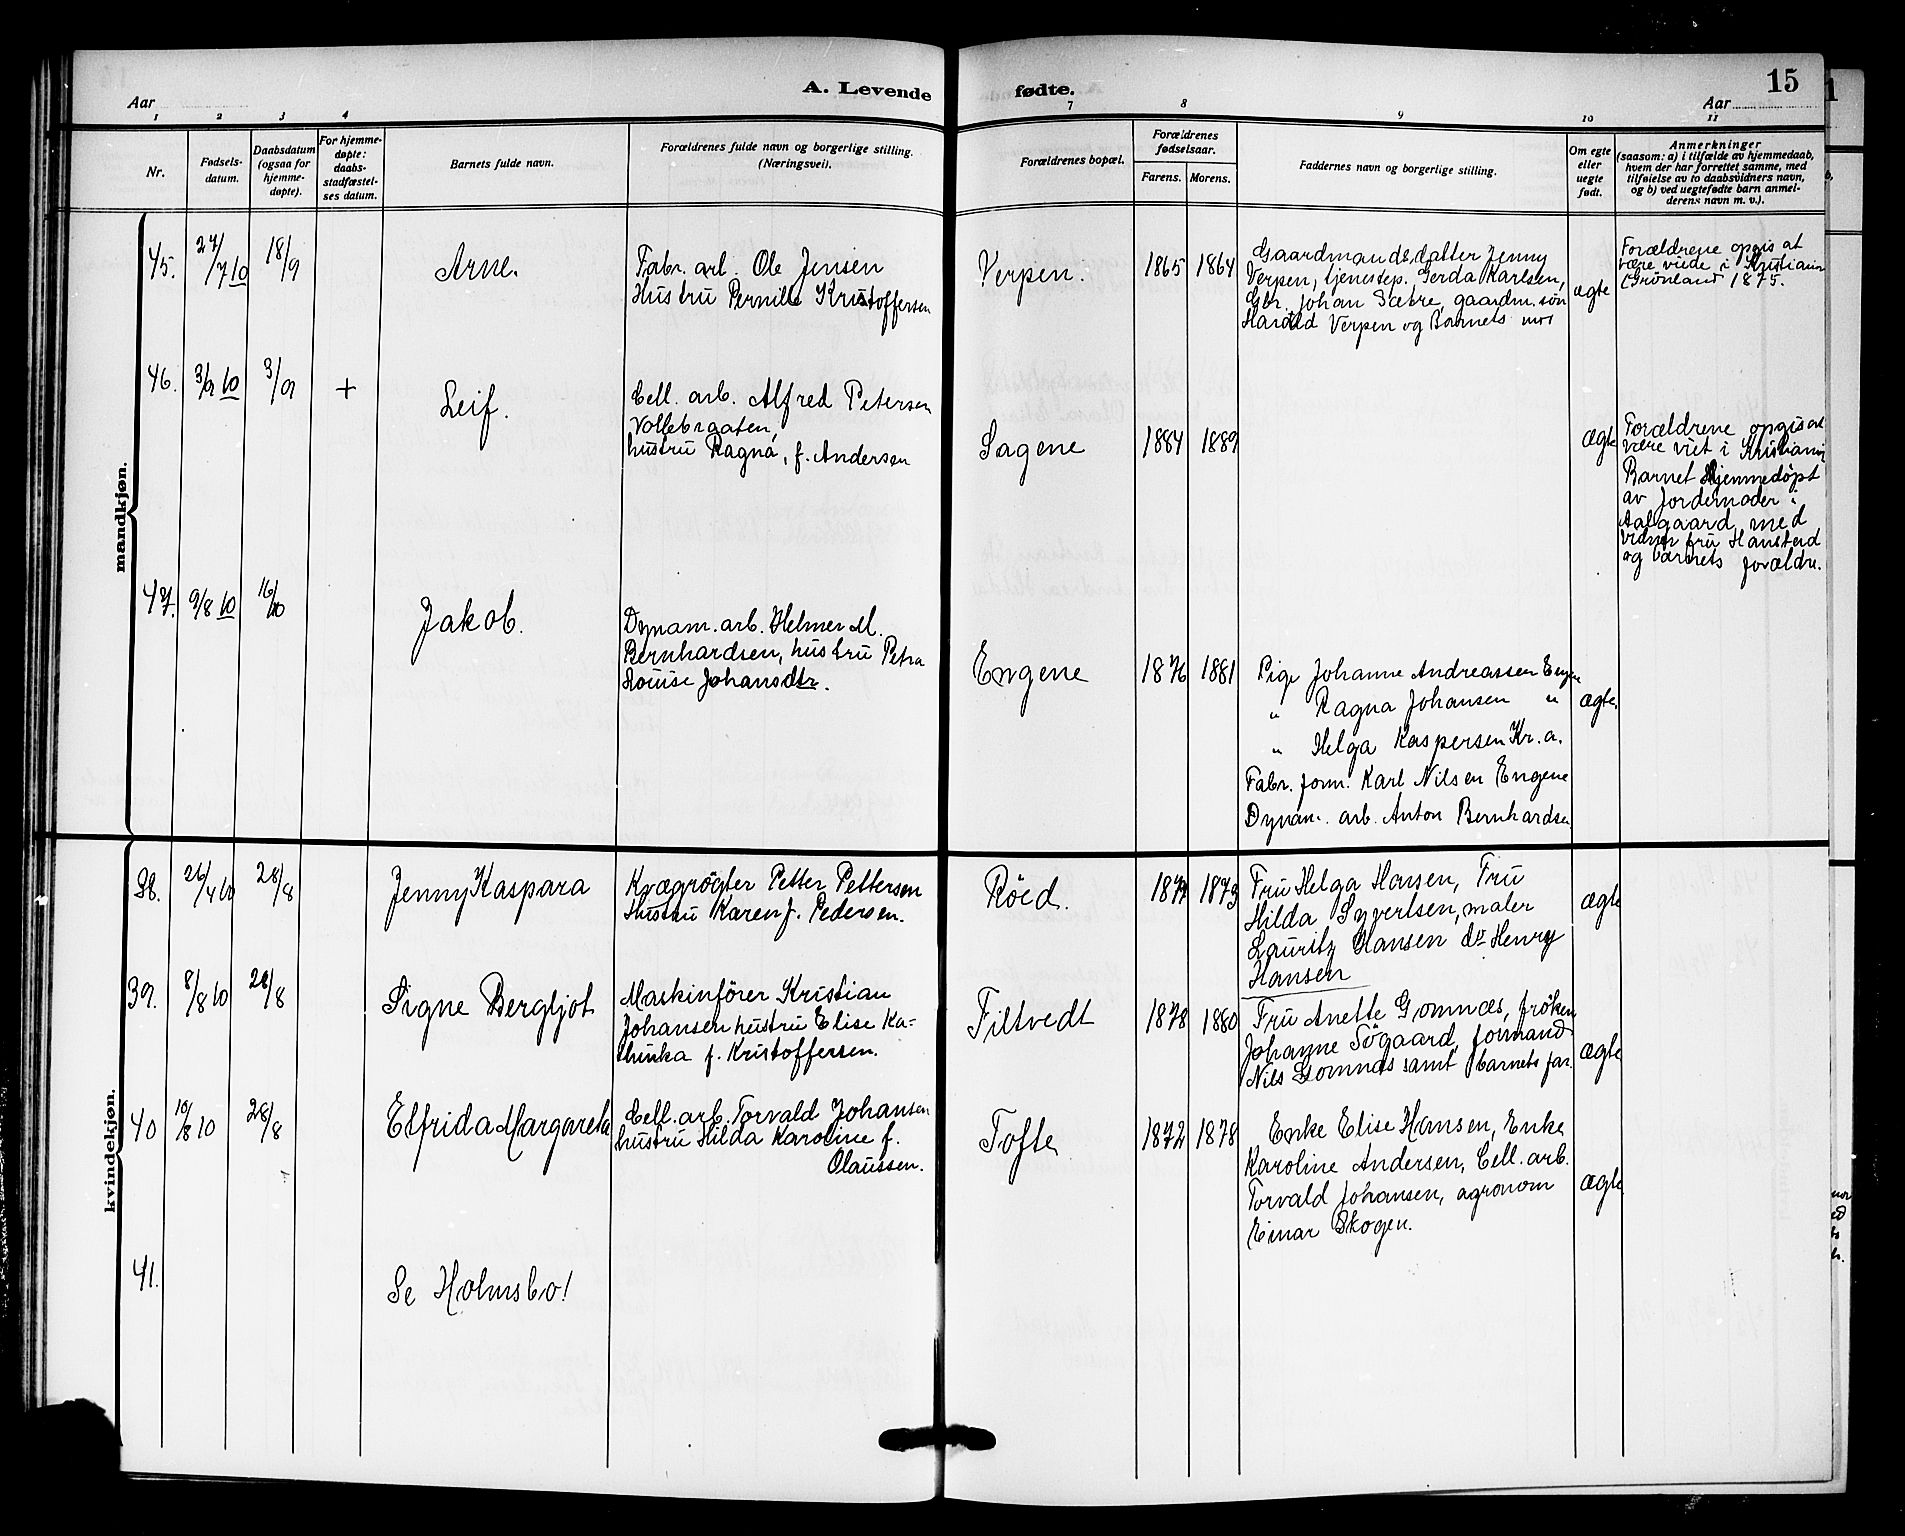 A. Levende
fødte.
15
Aar
Aar
1 2 3 4
7 8 9 10 11
Nr.
Fødsels-
datum.
Daabsdatum
(ogsaa for
hjemme-
døpte).
For hjemme-
døpte:
daabs-
stadfæstel-
ses datum.
Barnets fulde navn.
Forældrenes fulde navn og borgerlige stilling.
(Næringsvei).
Forældrenes bopæl.
Forældrenes
fødselsaar.
Farens. Morens.
Faddernes navn og borgerlige stilling.
Om egte
eller
uegte
født.
Anmerkninger
(saasom: a) i tilfælde av hjemmedaab,
hvem der har forrettet samme, med
tilføielse av to daabsvidners navn,
og b) ved uegtefødte barn anmel-
derens navn m. v.).
mandkjøn.
45. 27/7 10 18/9
Arne.
Fabr. arb. Ole Jensen
Hustru Pernille Kristoffersen
Verpen. 1865 1864
Gaardmandsdatter Jenny
Verpen, tjenestep. Gerda Karlsen,
Gbr. Johan Sætre, gaardm. søn
Harald Verpen og Barnets mor
ægte
Forældrene opgis at
være viede i Kristiania
(Grønland 1875.
46. 3/9 10 3/9 +
Leif.
Cell. arb. Alfred Petersen
Vollebraaten,
hustru Ragna, f. Andersen
Sagene 1884 1889
ægte
Forældrene opgis at
være viet i Kristiania
Barnet Hjemmedøpt
av Jordemoder
Aalgaard, med
vidner fru Hansterd
og barnets forældre.
47. 9/8 10 16/10
Jakob.
Dynam. arb. Helmer M.
Bernhardsen, hustru Petra
Louise Johansdtr.
Engene 1876 1881
Pige Johanne Andreassen Engene
" Ragna Johansen "
" Helga Kaspersen Kr.a.
Fabr. form. Karl Nilsen Engene
Dynam. arb. Anton Bernhardsen
ægte.
kvindekjøn.
38. 26/4 10 28/8
Jenny Kaspara
Kvægrøgter Petter Pettersen
Hustru Karen f. Pedersen.
Röed. 1877 1873
Fru Helga Hansen, Fru
Hilda Syvertsen, maler
Lauritz Hansen do Henry
Hansen
ægte
39. 8/8 10 28/8
Signe Bergljot
Maskinfører Kristian
Johansen hustru Elise Ka-
thinka f. Kristoffersen.
Filtvedt 1878 1880
Fru Anette Gomnæs, frøken
Johanne Søgaard, formand
Nils Gomnæs samt barnets far.
ægte
40 10/8 10 28/8
Elfrida Margareta
Cell. arb. Torvald Johansen
hustru Hilda Karoline f.
Olaussen.
Tofte 1872 1878
Enke Elise Hansen, Enke
Karoline Andersen, Cell. arb.
Torvald Johansen, agronom
Einar Skogen.
ægte
41.
Se Holmsbo!